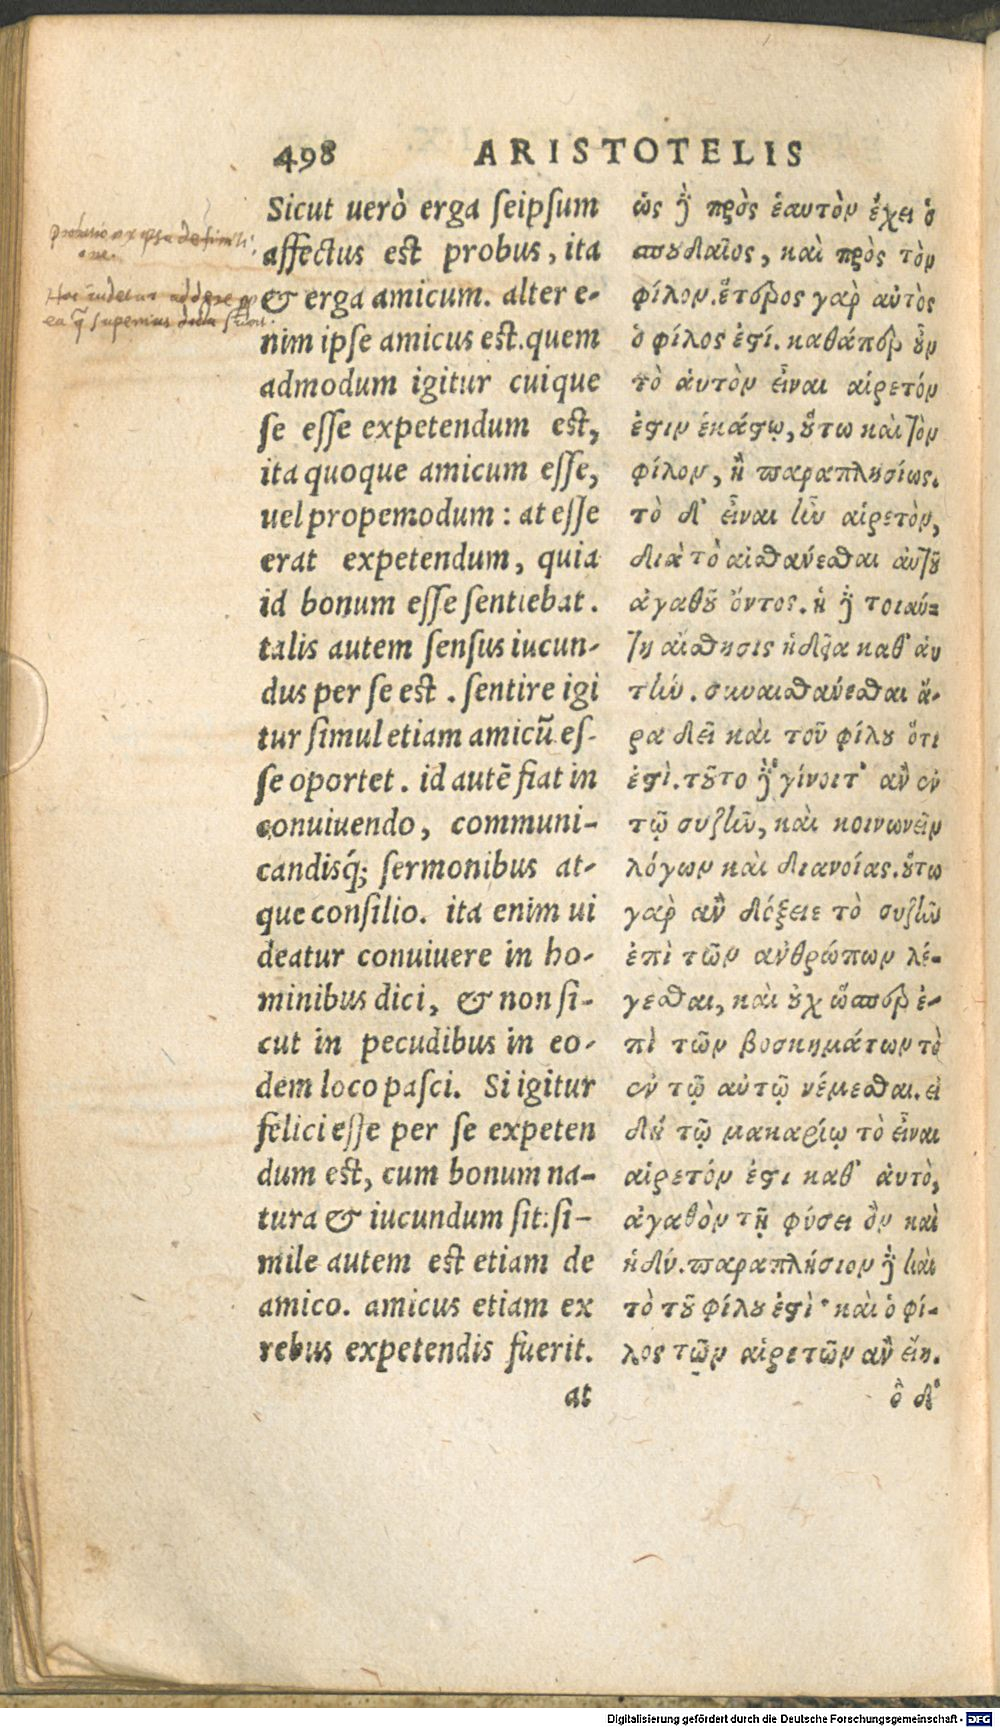 498 ARISTOTELIS
Sicut uerò erga seipsum
affectus est probus, ita
& erga amicum. alter e-
nim ipse amicus est. quem
admodum igitur cuique
se esse expetendum est,
ita quoque amicum esse,
uel propemodum: at esse
erat expetendum, quia
id bonum esse sentiebat.
talis autem sensus iucun-
dus per se est. sentire igi
tur simul etiam amicū es-
se oportet. id autē fiat in
conuiuendo, communi-
candisq́; sermonibus at-
que consilio. ita enim ui
deatur conuiuere in ho-
minibus dici, & non si-
cut in pecudibus in eo-
dem loco pasci. Si igitur
felici esse per se expeten
dum est, cum bonum na-
tura & iucundum sit: si-
mile autem est etiam de
amico. amicus etiam ex
rebus expetendis fuerit.
at
ὡς δὲ πρὸς ἑαυτὸν ἔχει ὁ
σπουδαῖος, καὶ πρὸς τὸν
φίλον. ἕτερος γὰρ αὐτὸς
ὁ φίλος ἐστί. καθάπερ οὖν
τὸ αὑτὸν εἶναι αἱρετόν
ἐστιν ἑκάστῳ, οὕτω καὶ τὸν
φίλον, ἢ παραπλησίως.
τὸ δ' εἶναι ἦν αἱρετὸν,
διὰ τὸ αἰσθάνεσθαι αὑτοῦ
ἀγαθοῦ ὄντος. ἡ δὲ τοιαύ-
τη αἴσθησις ἡδεῖα καθ' αὑ
τήν. συναισθάνεσθαι ἄ-
ρα δεῖ καὶ τοῦ φίλου ὅτι
ἐστὶ. τοῦτο δὲ γίνοιτ' ἂν ἐν
τῷ συζῆν, καὶ κοινωνεῖν
λόγων καὶ διανοίας. οὕτω
γὰρ ἂν δόξειε τὸ συζῆν
ἐπὶ τῶν ἀνθρώπων λέ-
γεσθαι, καὶ οὐχ ὥσπερ ἐ-
πὶ τῶν βοσκημάτων τὸ
ἐν τῷ αὐτῷ νέμεσθαι. εἰ
δὴ τῷ μακαρίῳ τὸ εἶναι
αἱρετόν ἐστι καθ' αὑτὸ,
ἀγαθὸν τῇ φύσει ὂν καὶ
ἡδύ. παραπλήσιον δὲ καὶ
τὸ τοῦ φίλου ἐστὶ· καὶ ὁ φί-
λος τῶν αἱρετῶν ἂν εἴη.
ὃ δ'
Digitalisierung gefördert durch die Deutsche Forschungsgemeinschaft - DFG